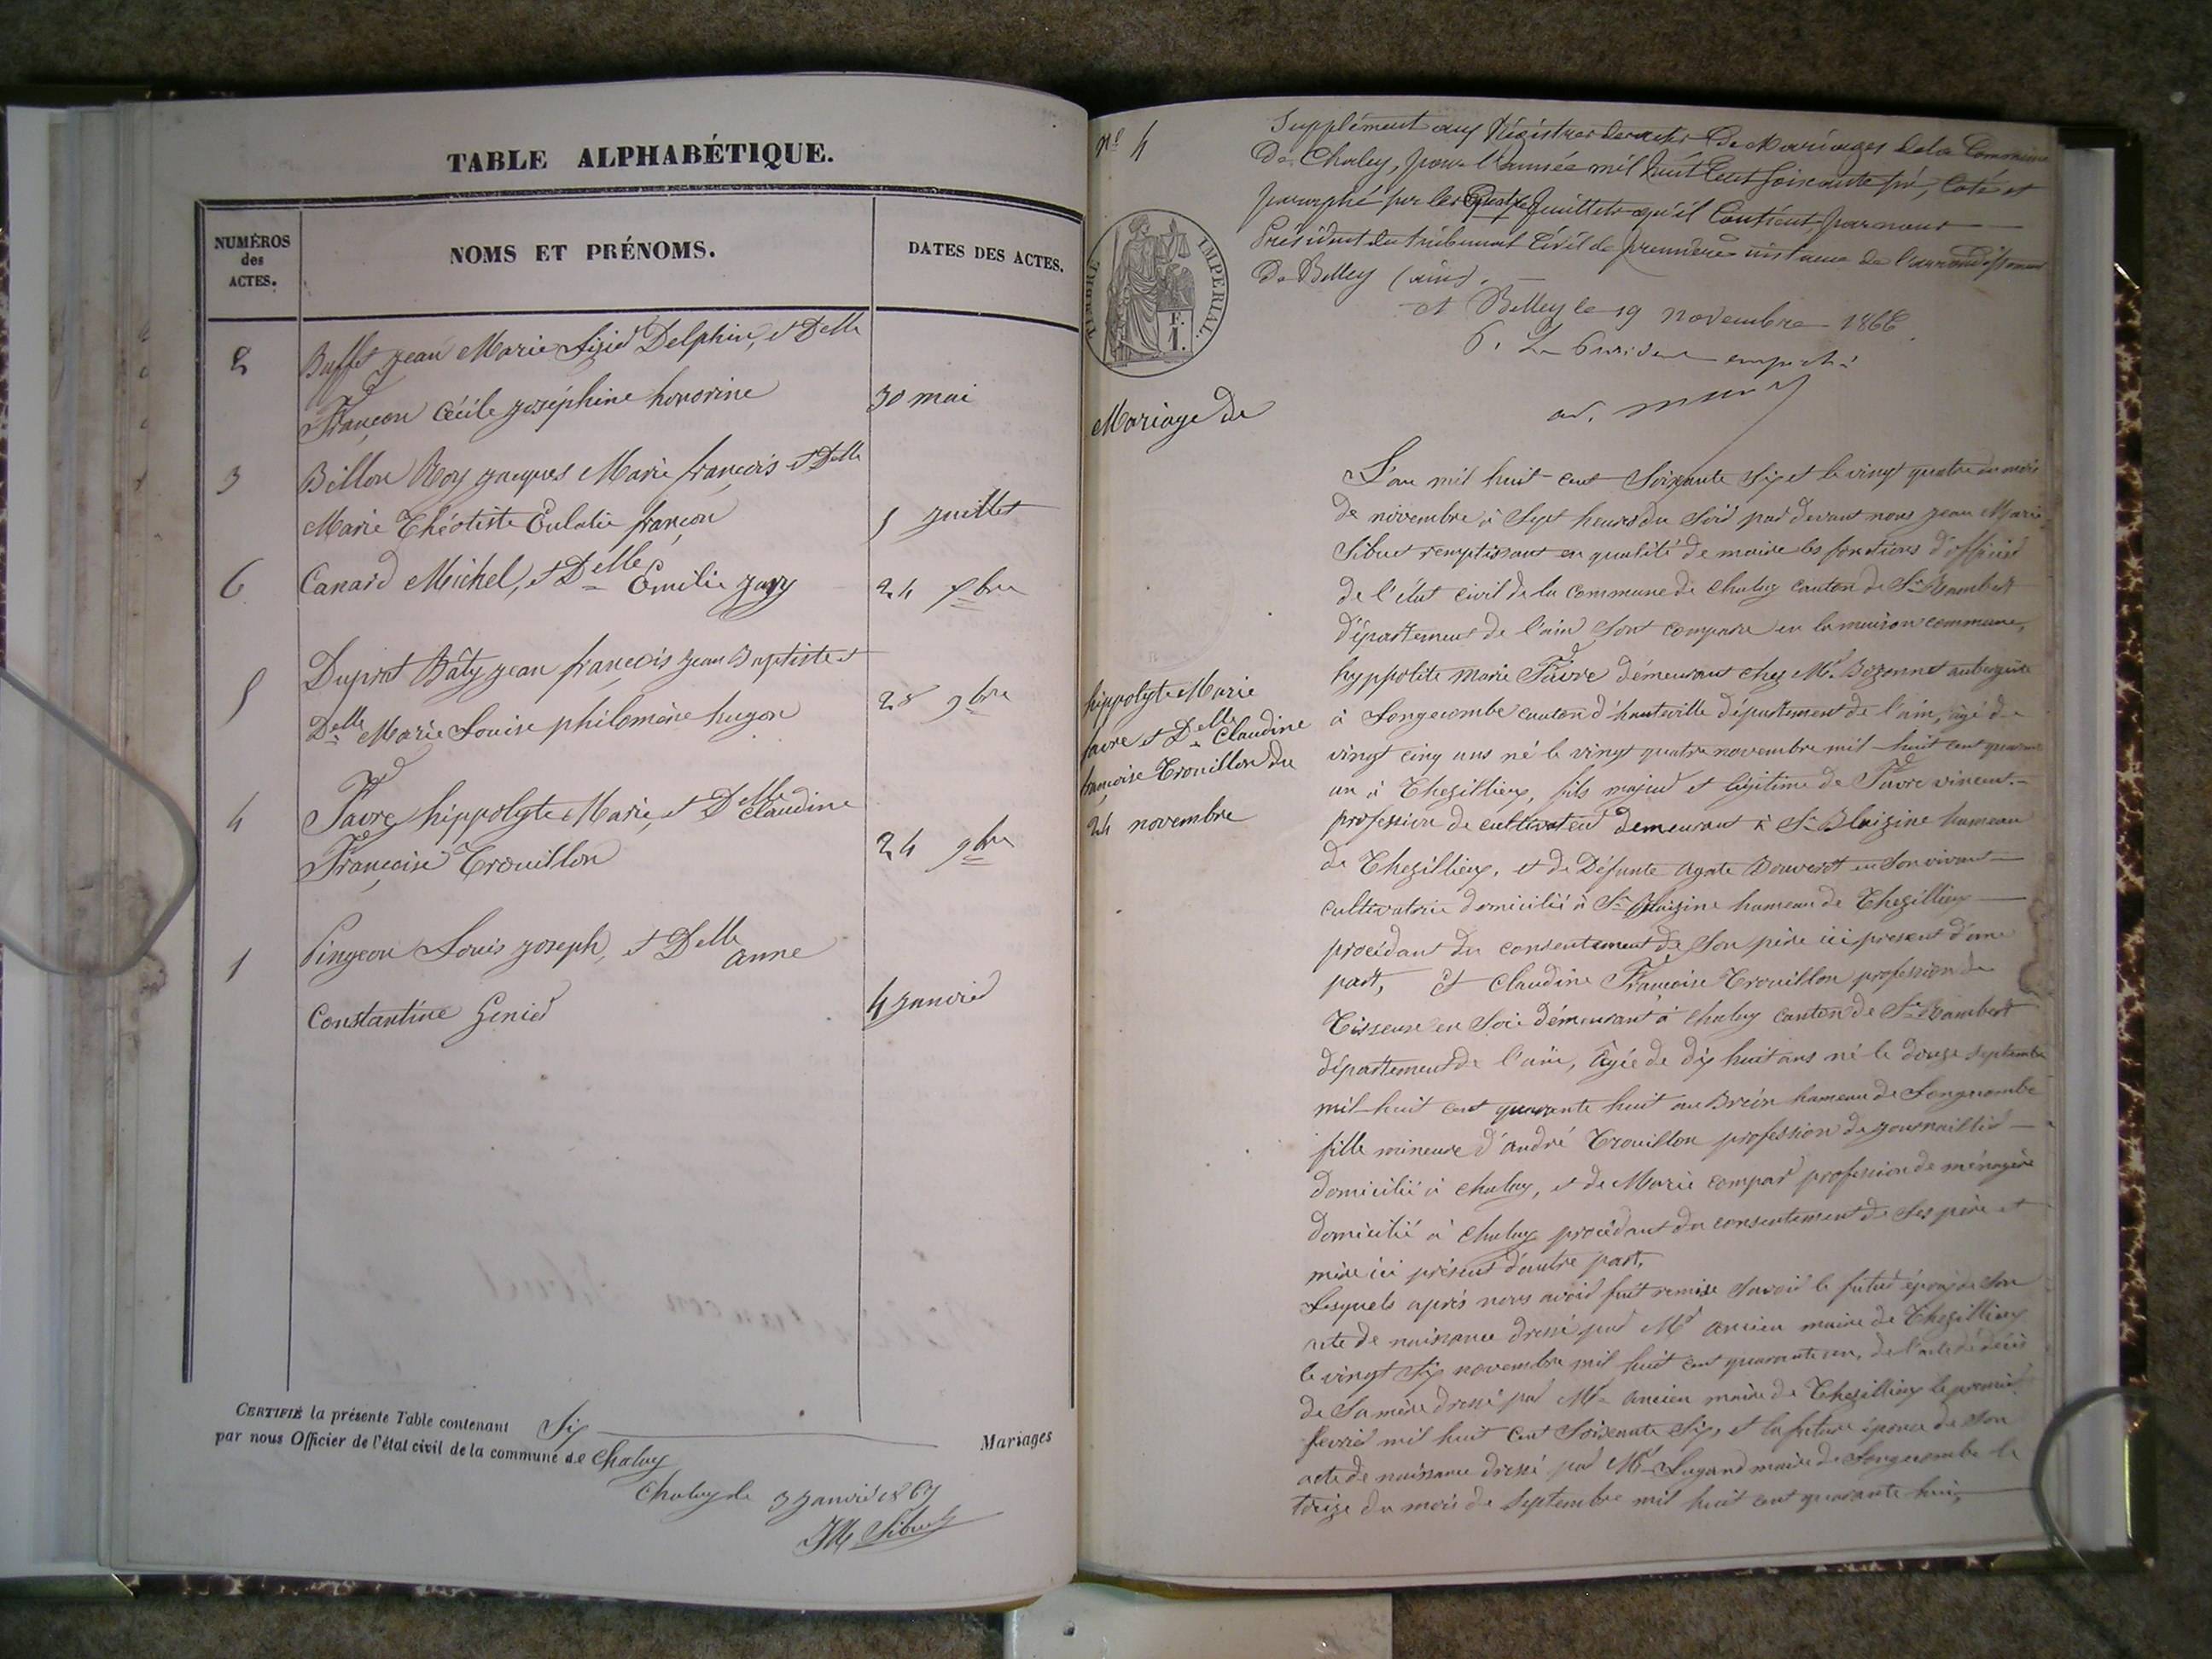 TABLE ALPHABÉTIQUE.
NUMÉROS
des
ACTES.
NOMS ET PRÉNOMS.
DATES DES ACTES.
2 Buffet jean Marie Delphin, et Delle
Françon Cécile joséphine honorine 30 mai
3 Billon Roy jacques Marie françois et Delle
Marie Théotiste Eulalie françon 5 juillet
6 Canard Michel, et Delle Emilie 24 xbre
Duprat Bâty jean françois jean Baptiste et
5 Delle Marie Louise philomène hugon 28 9bre
4 Favre hippolyte Marie, et Delle Claudine
Françoise Trouillon 24 9bre
1 Pingeon Louis joseph, et Delle anne
Constantine Genier 4 janvier
CERTIFIÉ la présente Table contenant Six Mariages
par nous Officier de l'état civil de la commune de Chaley
Chaley le 3 janvier 1867
JM Sibuet
No 4
Supplément aux Régistres des actes de Mariages de la Commune
De Chaley, pour l'année mil huit Cent soixante six, Coté et
paraphé par les quatre feuillets qu'il Contient, par nous
Président du tribunal Civil de première instance de l'arrondissement
De Belley (ain).
TIMBRE IMPÉRIAL.
F.
1.
Belley le 19 novembre 1866
P. Le Président empêché
Mariage de
L'an mil huit-cent Soixante Six et le vingt quatre du mois
de novembre à Sept heures du Soir par devant nous jean Marie
Sibuet remplissant en qualité de maire les fonctions d'officier
de l'état civil de la commune de Chaley canton de St Rambert
département de l'ain sont comparu en la maison commune,
hyppolite marie Favre demeurant chez Mr. Bozonnet aubergiste
à Longecombe canton d'hauteville département de l'ain, âgé de
vingt cinq ans né le vingt quatre novembre mil huit cent quarante
un à Thezillieu, fils majeur et légitime de Favre vincent
profession de cultivateur demeurant à St Blaizine hameau
de Thezillieu, et de Défunte agate Bouverot en son vivant
cultivatrice domicilié à St Blaizine hameau de Thezillieu
procédant du consentement de Son père ici présent d'une
part, Et Claudine Françoise Trouillon profession de
Tisseuse en Soie demeurant à Chaley canton de St Rambert
département de l'ain, âgée de dix huit ans né le douze septembre
mil huit cent quarante huit au hameau de Longecombe
fille mineure d'andré Trouillon profession de journaillier
domicilié à chaley, et de Marie compar profession de ménagère
domicilié à chaley procédant du consentement de Ses père et
mère ici présent d'autre part,
Lesquels après nous avoir fait remise Savoir le futur époux de Son
acte de naissance dressé par Mr ancien maire de Thezillieu
le vingt Six novembre mil huit cent quarante un, de l'acte de décès
de Sa mère dressé par Mr ancien maire de Thezillieu le premier
fevrier mil huit Cent Soixante Six, et la future épouse de Son
acte de naissance dressé par Mr Lugand maire de Longecombe le
treize du mois de Septembre mil huit cent quarante huit,
hippolyte Marie
favre et Delle Claudine
françoise Trouillon du
24 novembre